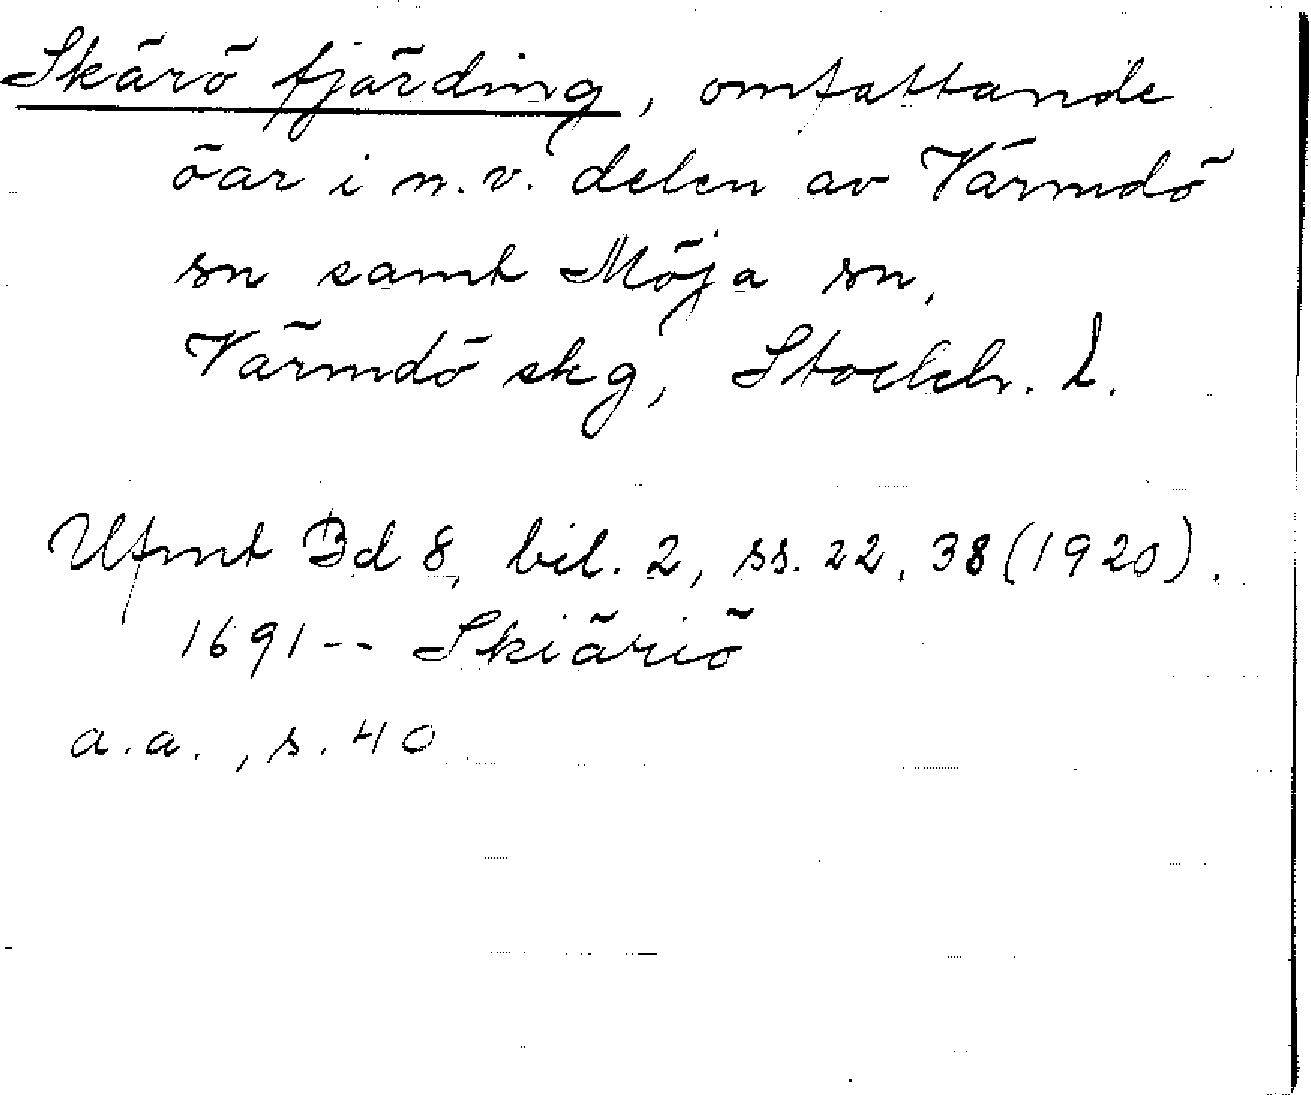 Skärö fjärding, omfattande
öar i n.v. delen av Värmdö
sn samt Möja sn,
Värmdö skg, Stockh. l.
Ufmt Bd 8, bil. 2, ss. 22, 38 (1920).
1691-- Skiäriö
a.a., s. 40